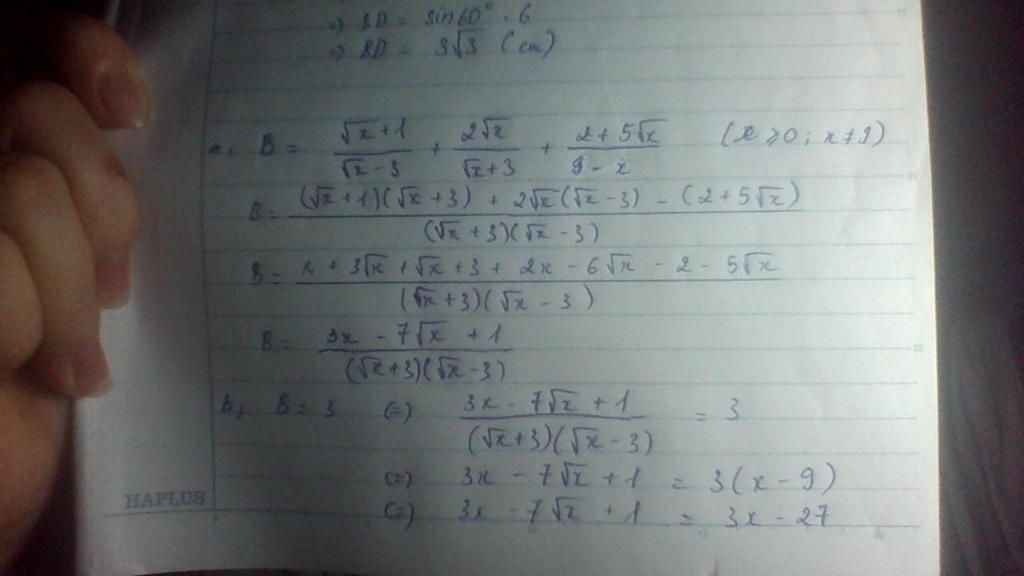 => BD = sin60° . 6
=> BD = 3√3 (cm)
a, B = (√x + 1)/(√x - 3) + (2√x)/(√x + 3) + (2 + 5√x)/(9 - x) (x ≥ 0 ; x ≠ 9)
B = ((√x + 1)(√x + 3) + 2√x(√x - 3) - (2 + 5√x))/((√x + 3)(√x - 3))
B = (x + 3√x + √x + 3 + 2x - 6√x - 2 - 5√x)/((√x + 3)(√x - 3))
B = (3x - 7√x + 1)/((√x + 3)(√x - 3))
b, B = 3 (=) (3x - 7√x + 1)/((√x + 3)(√x - 3)) = 3
(=) 3x - 7√x + 1 = 3(x - 9)
(=) 3x - 7√x + 1 = 3x - 27
HAPLUS